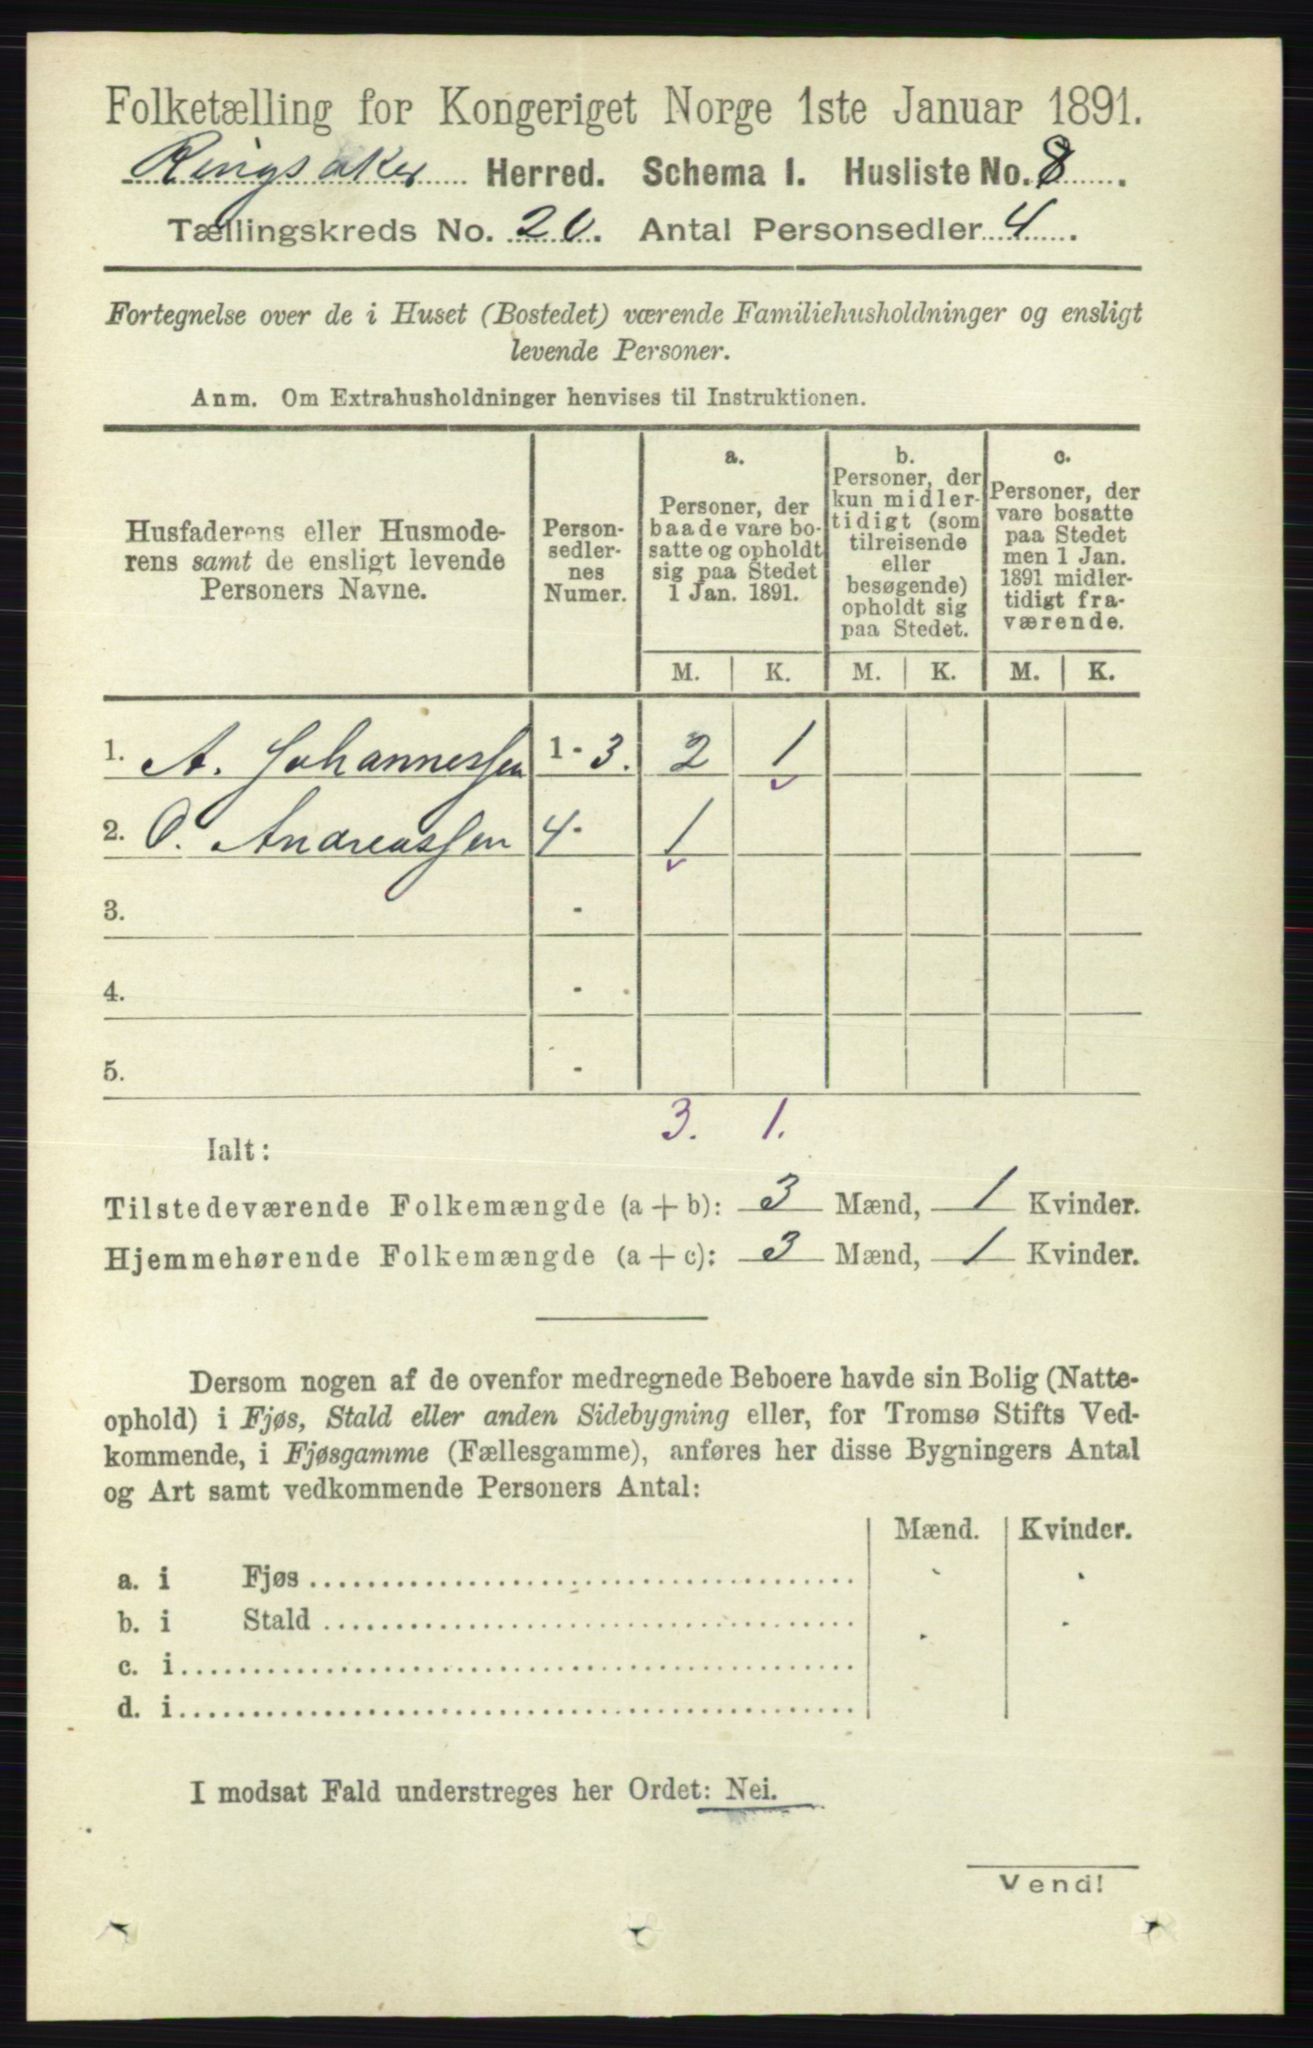 Folketælling for Kongeriget Norge 1ste Januar 1891.
Ringsaker Herred. Schema I. Husliste No. 8.
Tællingskreds No. 20. Antal Personsedler 4.
Fortegnelse over de i Huset (Bostedet) værende Familiehusholdninger og ensligt
levende Personer.
Anm. Om Extrahusholdninger henvises til Instruktionen.
Husfaderens eller Husmode-
rens samt de ensligt levende
Personers Navne.
Person-
sedler-
nes
Numer.
a.
Personer, der
baade vare bo-
satte og opholdt
sig paa Stedet
1 Jan. 1891.
b.
Personer, der
kun midler-
tidigt (som
tilreisende
eller
besøgende)
opholdt sig
paa Stedet.
c.
Personer, der
vare bosatte
paa Stedet
men 1 Jan.
1891 midler-
tidigt fra-
værende.
M. K. M. K. M. K.
1. A. Johannessen 1 - 3. 2 1
2. O. Andreassen 4 - 1
3. -
4. -
5. -
3. 1.
Ialt:
Tilstedeværende Folkemængde (a + b): 3 Mænd, 1 Kvinder.
Hjemmehørende Folkemængde (a + c): 3 Mænd, 1 Kvinder.
Dersom nogen af de ovenfor medregnede Beboere havde sin Bolig (Natte-
ophold) i Fjøs, Stald eller anden Sidebygning eller, for Tromsø Stifts Ved-
kommende, i Fjøsgamme (Fællesgamme), anføres her disse Bygningers Antal
og Art samt vedkommende Personers Antal:
Mænd. Kvinder.
a. i Fjøs
b. i Stald
c. i
d. i
I modsat Fald understreges her Ordet: Nei.
Vend!